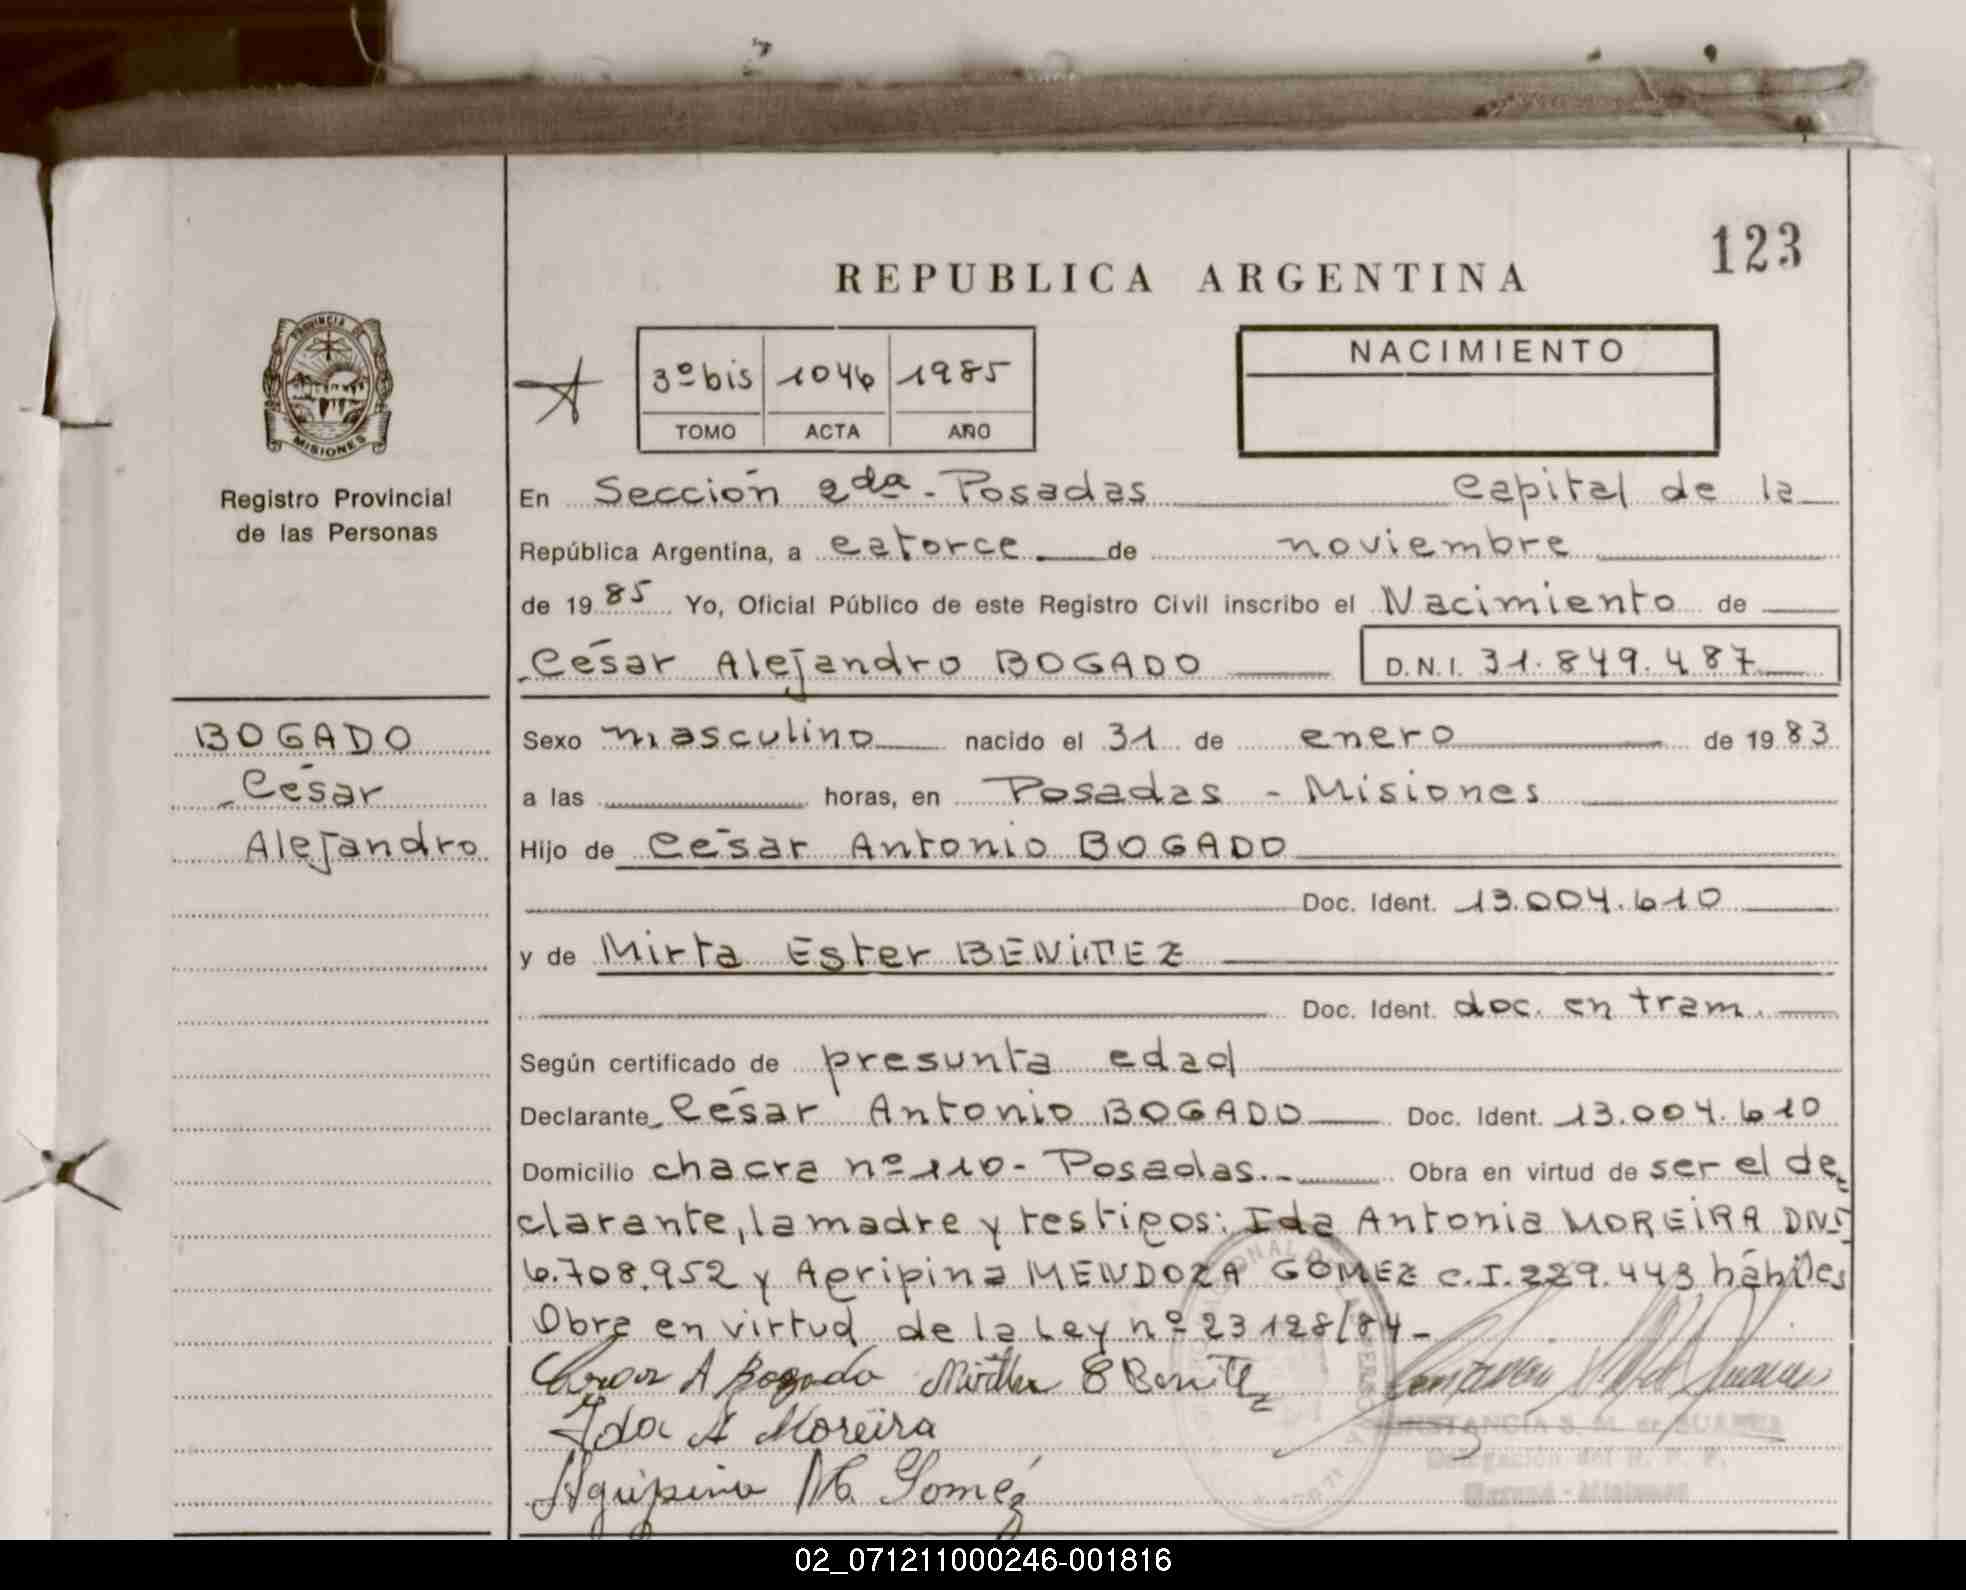 123
REPUBLICA ARGENTINA
PROVINCIA DE
MISIONES
Registro Provincial
de las Personas
3º bis 1046 1985
TOMO ACTA AÑO
NACIMIENTO
En Sección 2da - Posadas Capital de la
República Argentina, a catorce de noviembre
de 19 85 Yo, Oficial Público de este Registro Civil inscribo el Nacimiento de
César Alejandro BOGADO D.N.I. 31.849.487
BOGADO
César
Alejandro
Sexo masculino nacido el 31 de enero de 19 83
a las horas, en Posadas - Misiones
Hijo de César Antonio BOGADO
Doc. Ident. 13.004.610
y de Mirta Ester BENÍTEZ
Doc. Ident. doc. en tram.
Según certificado de presunta edad
Declarante César Antonio BOGADO Doc. Ident. 13.004.610
Domicilio chacra nº 110 - Posadas. - Obra en virtud de ser el de
clarante, la madre y testigos: Ida Antonia MOREIRA DNI
6.708.952 y Agripina MENDOZA GOMEZ C.I. 229.443 hábiles
Obra en virtud de la Ley nº 23128/84 -
Cesar A Bogado Mirtha E Benitez
Ida A Moreira
Agripina M. Goméz
CONSTANCIA S. M. de SUAREZ
Delegación del R. P. P.
02_071211000246-001816